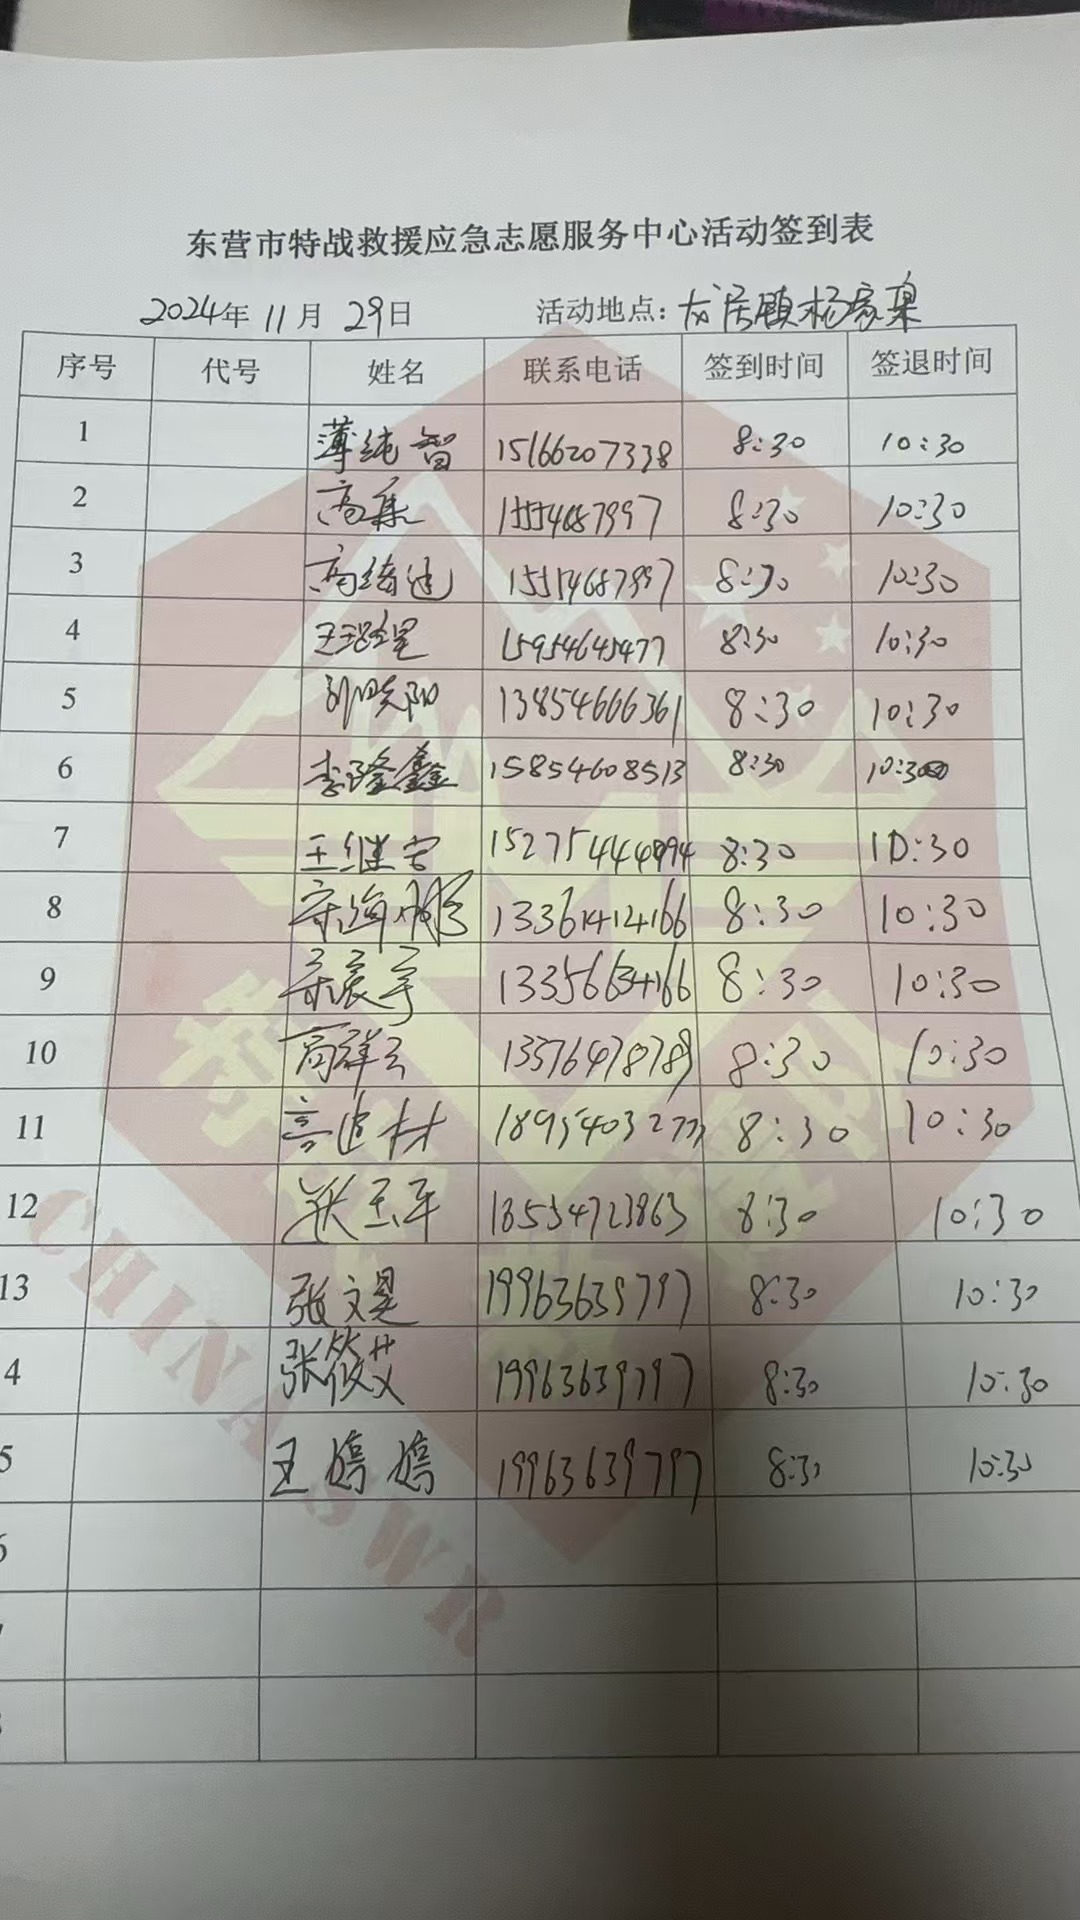 东营市特战救援应急志愿服务中心活动签到表
2024年 11月 29日 活动地点：龙居镇杨家
序号 代号 姓名 联系电话 签到时间 签退时间
1 薄纯智 15166207338 8:30 10:30
2 高 15554687997 8:30 10:30
3 高 15554687997 8:30 10:30
4 王 15954645477 8:30 10:30
5 刘晓阳 13854666361 8:30 10:30
6 李隆鑫 15854608513 8:30 10:30
7 王继 8:30 10:30
8 海 13361412166 8:30 10:30
9 宸宇 8:30 10:30
10 高祥云 8:30 10:30
11 8:30 10:30
12 玉军 8:30 10:30
13 张文昊 19963639797 8:30 10:30
4 张筱艾 19963639797 8:30 10:30
5 王嫮嫮 19963639797 8:30 10:30
6
CHINA SWR